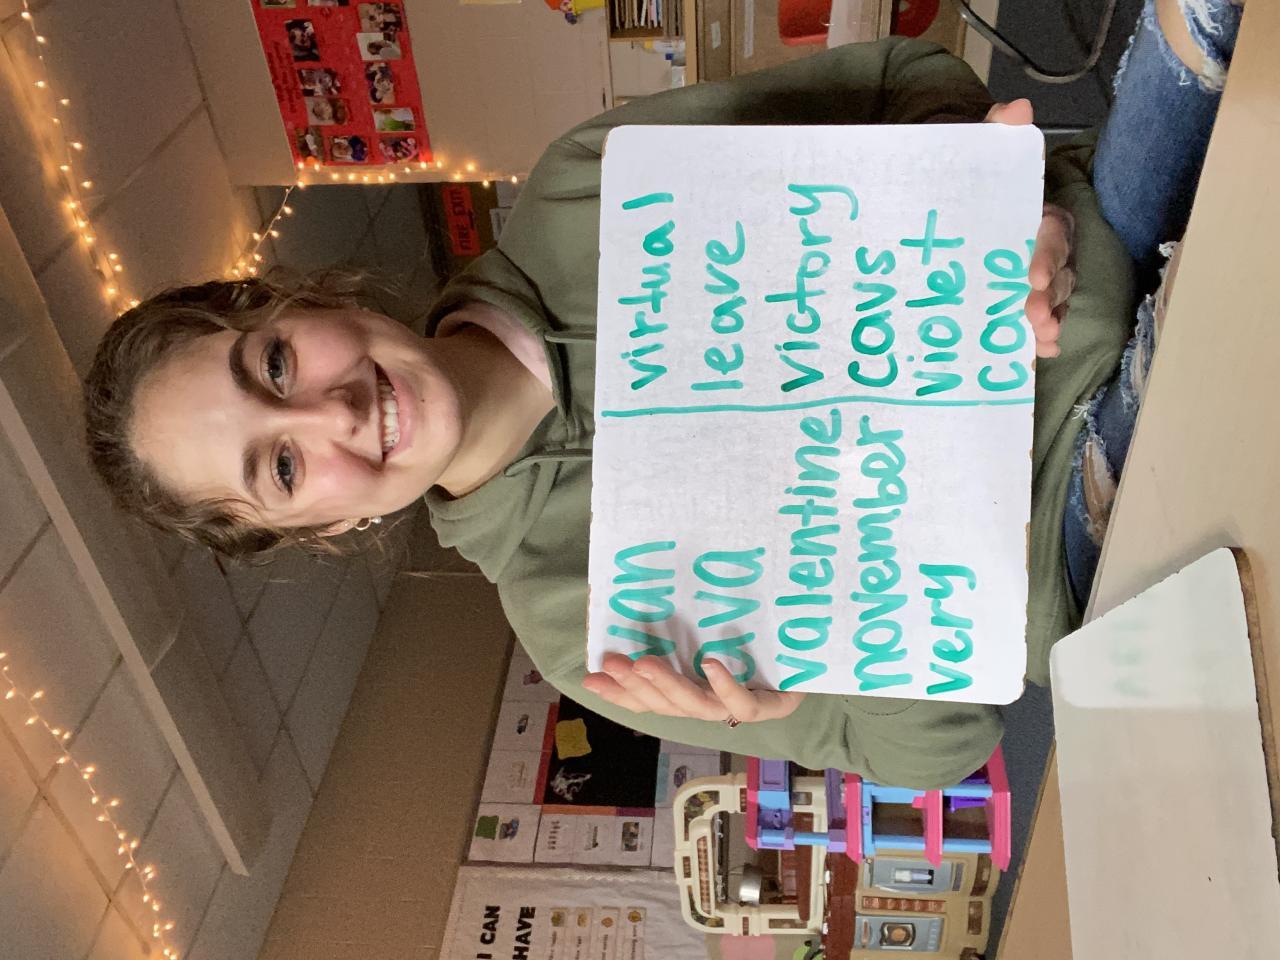 van
ava
valentine
november
very
virtual
leave
victory
cavs
violet
cave
FIRE EXIT
I CAN
HAVE